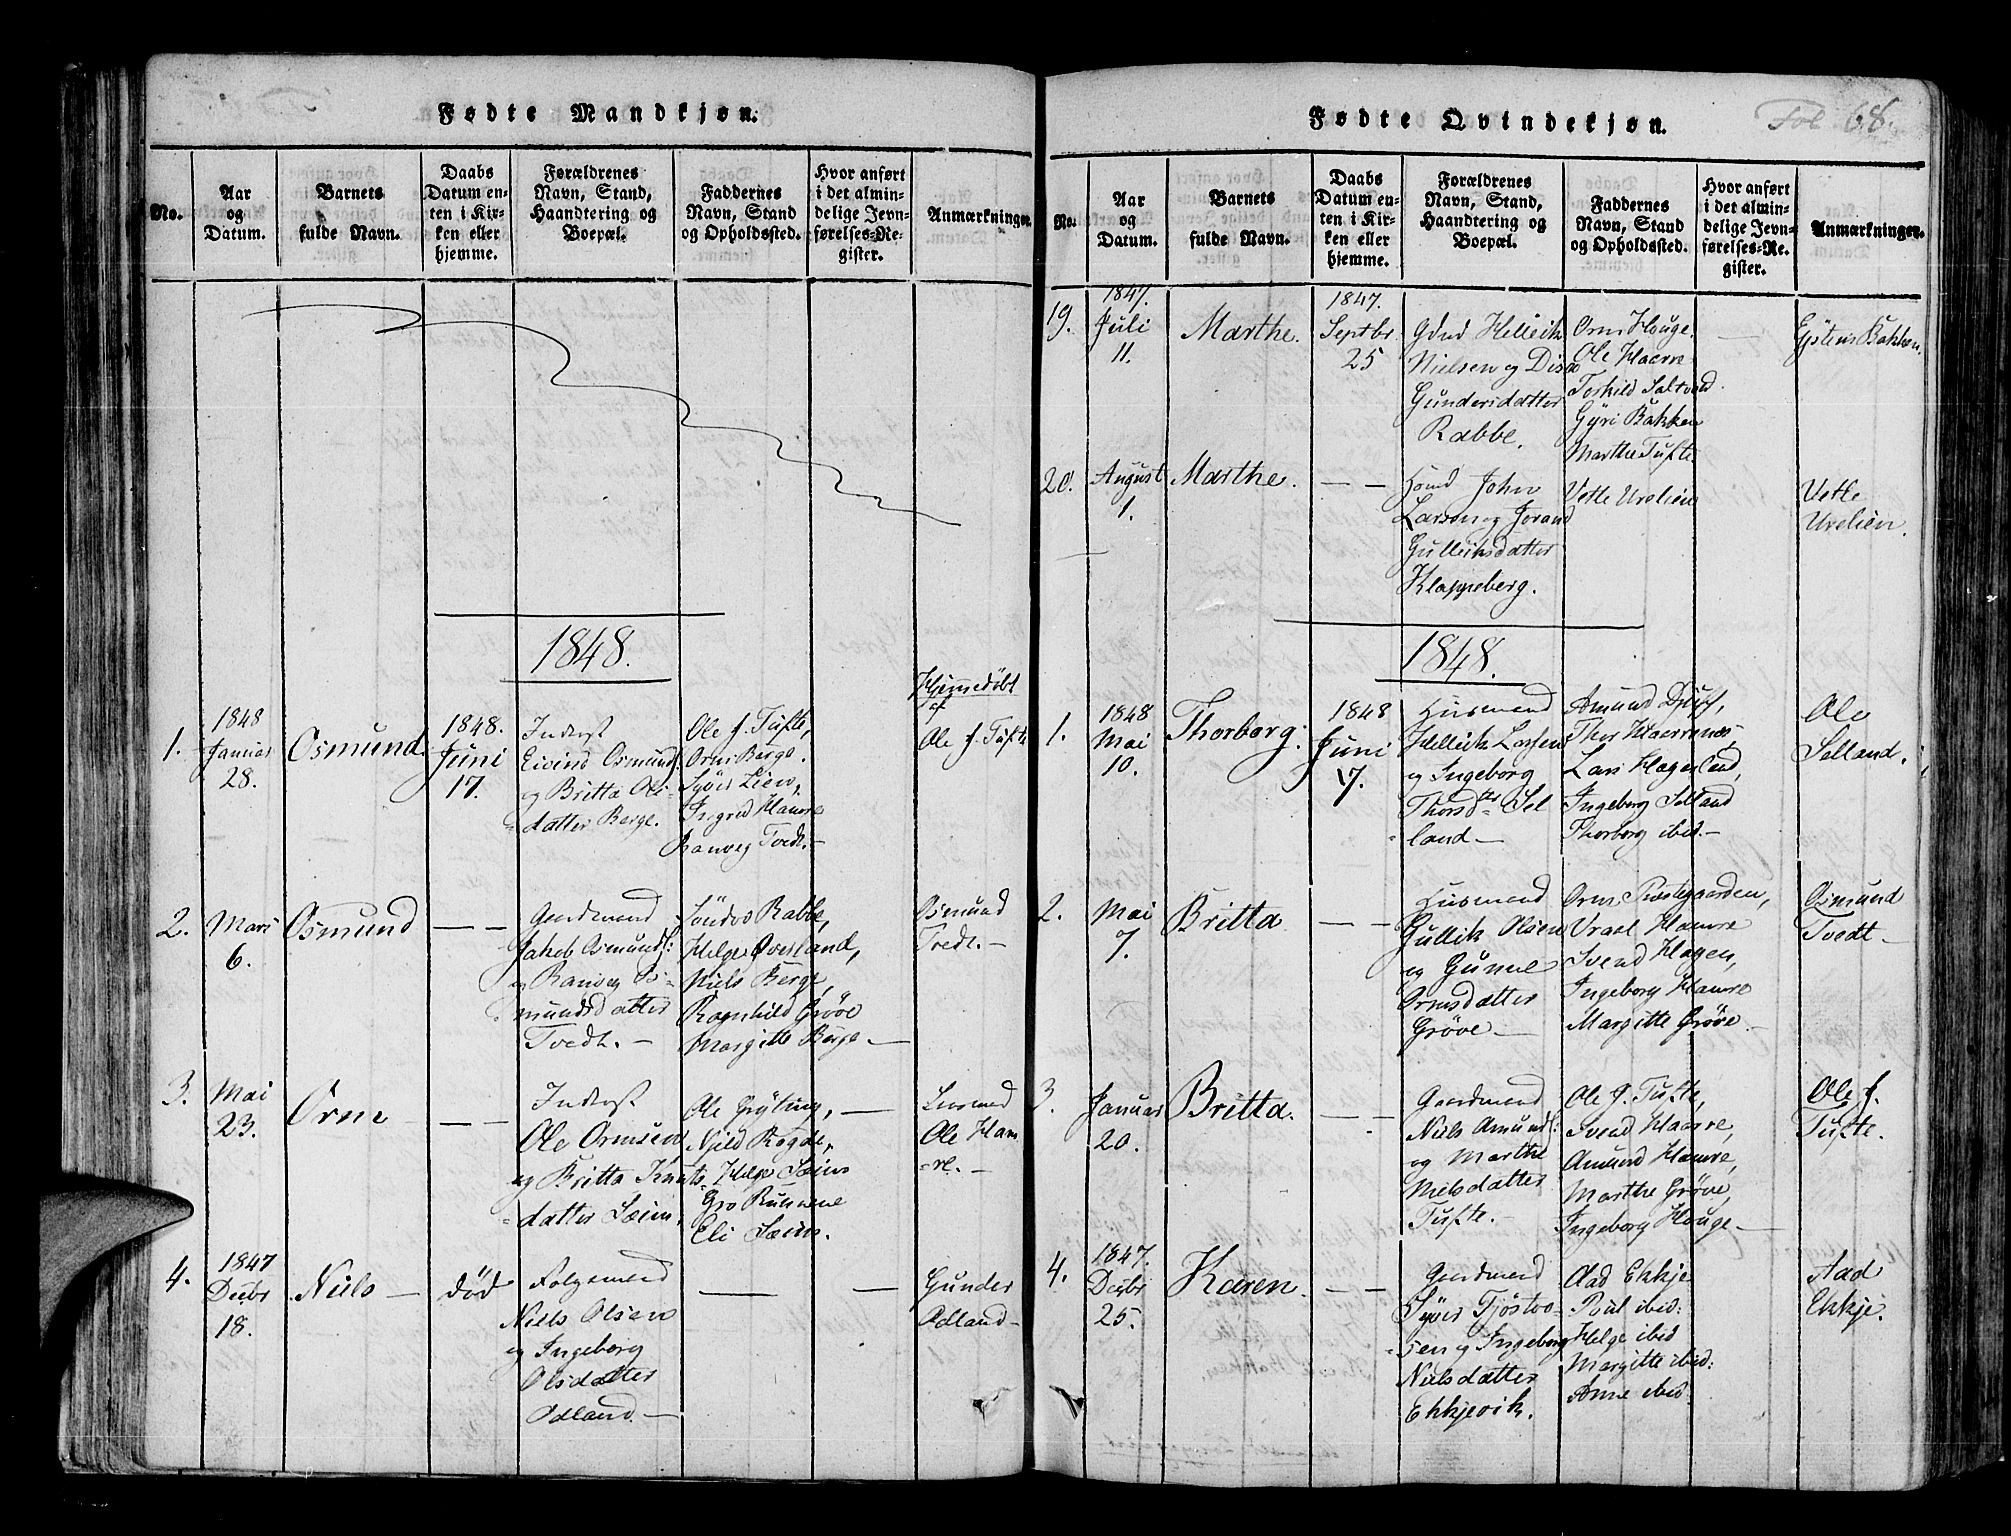 Fødte Mandkjøn.
No.
Aar
og
Datum.
Barnets
fulde Navn.
Daabs
Datum en-
ten i Kir-
ken eller
hjemme.
Forældrenes
Navn, Stand,
Haandtering og
Boepæl.
Faddernes
Navn, Stand
og Opholdssted.
Hvor anført
i det almin-
delige Jevn-
førelses-Re-
gister.
Anmærkninger.
1848.
1.
1848
Januar
28.
Osmund.
1848.
Juni
17.
Inderst
Eivind Osmunds:
og Britta Ols-
datter Berge.
Ole J. Tufte,
Orm Berge.
Syver Lien,
Ingrid Hamre
Ranveg Tvedt.-
Hjemmedöbt
af
Ole J. Tufte
2.
Mars
6.
Osmund
— —
Gaardmand
Jakob Osmunds:
og Ranveg Os-
mundsdatter
Tvedt. —
Söndvo Rabbe,
Helge Överland,
Niels Berge,
Ragnhild Gröve
Margitte Berge —
Osmund
Tvedt. —
3.
Mai
23.
Orm —
— —
Inderst
Ole Ormsen,
og Britta Knuts-
datter Sæim.
Ole Gryting, —
Njeld Rogde,
Helge Sæim
Gro
Eli Sæim.
Ole Ham-
re. —
4.
1847
Decbr
18.
Niels —
död
Folgemand
Niels Olsen
og Ingeborg
Olsdatter
Odland. —
—
—
Gunder
Odland —
Fødte Qvindekjøn.
Fol 68.
No.
Aar
og
Datum.
Barnets
fulde Navn.
Daabs
Datum en-
ten i Kir-
ken eller
hjemme.
Forældrenes
Navn, Stand,
Haandtering og
Boepæl.
Faddernes
Navn, Stand
og Opholdssted.
Hvor anført
i det almin-
delige Jevn-
førelses-Re-
gister.
Anmærkninger.
19.
1847.
Juli
11.
Marthe.
1847.
Septbr
25
Gdmd Helleik
Nielsen og
Gundersdatter
Rabbe.
Orm Houge.
Ole Haarre
Torkild Saltvold.
Gyri Bakken
Marthe Tufte.
—
Ejstein Bakken.
20.
August
1.
Marthe.
— —
Huusmd John
Larsen og Jorand
Gulleiksdatter
Klappeberg.
Vetle Urelien
Vetle
Urelien.
1848.
1.
1848
Mai
10.
Thorborg.
1848
Juni
17.
Huusmand
Helleik Larsen
og Ingeborg
Thorsdtr Sel-
land —
Amund Djuff,
Thor Haarrenæs,
Lars Hagen
Ingeborg Selland
Thorborg ibid. —
Ole
Selland.
2.
Mai
7.
Britta
— —
Huusmand
Gullik Olsen
og Gunnil
Ormsdatter
Gröve —
Orm Prestegaarden,
Vraal Hamre
Svend Hagen,
Ingeborg Hamre
Margitte Gröve —
Osmund
Tvedt —
3.
Januar
20.
Britta.
— —
Gaardmand
Niels Amunds:
og Marthe
Nielsdatter
Tufte. —
Ole J. Tufte,
Svend Haarre,
Amund Hamre,
Marthe Gröve,
Ingeborg Houge —
Ole J.
Tufte.
4.
1847.
Decbr
25.
Karen.
— —
Gaardmand
Syver Tjöstvo-
sen og Ingeborg
Nielsdatter
Ekkjevik.
Aad Ekkje
Roul ibid:
Helge ibid
Margitte ibid:
Anne ibid.
Aad
Ekkje.